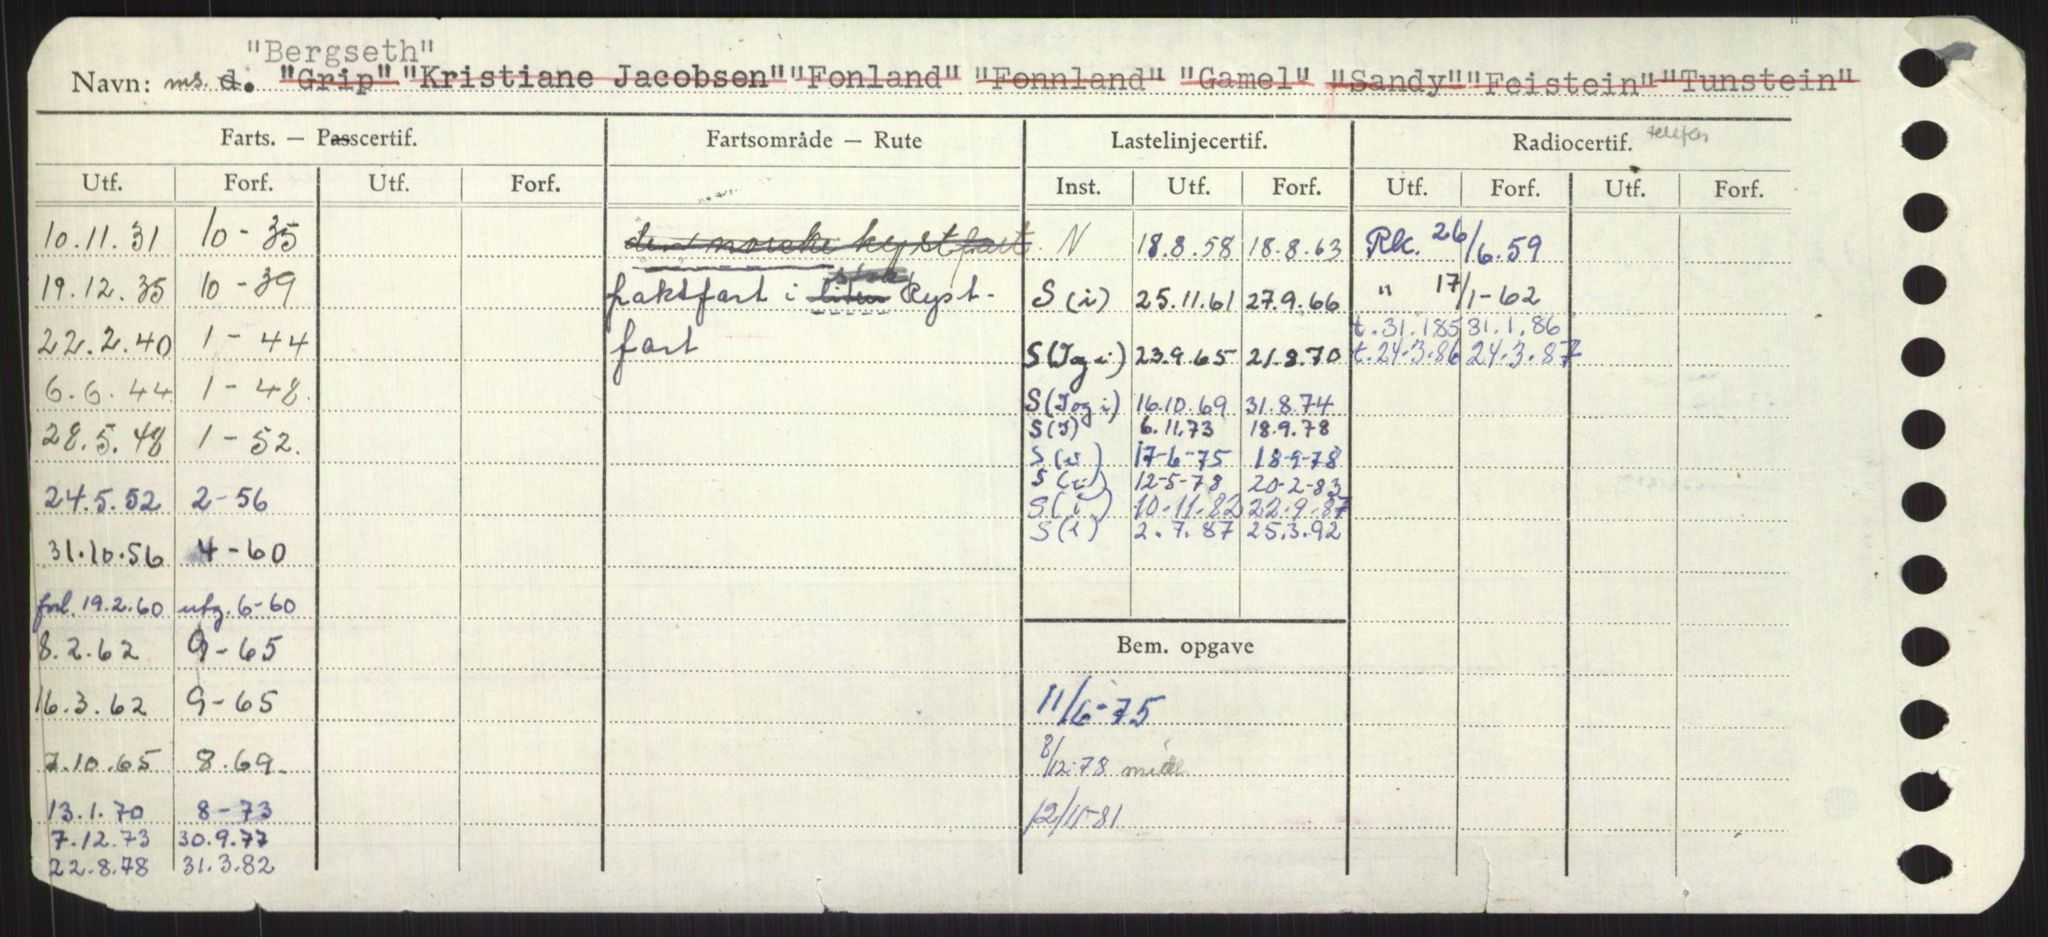 "Bergseth"
Navn: ms. d. "Grip" "Kristiane Jacobsen" "Fonland" "Fonnland" "Gamel" "Sandy" "Feistein" "Tunstein"
Farts. — Passcertif. Fartsområde — Rute Lastelinjecertif. Radiocertif. telefon
Utf. Forf. Utf. Forf. Inst. Utf. Forf. Utf. Forf. Utf. Forf.
10.11.31 10-35 den norske kystfart N 18.8.58 18.8.63 Rk. 26/6.59
19.12.35 10-39 fraktfart i liten stor Kyst- S (i) 25.11.61 27.9.66 " 17/1-62
t.31.185 31.1.86
22.2.40 1-44 fart S (I og i) 23.9.65 21.8.70 t.24.3.86 24.3.87
6.6.44 1-48. S (I og i) 16.10.69 31.8.74
28.5.48 1-52. S (I) 6.11.73 18.9.78
S (i) 17-6-75 18-9-78
S (i) 12-5-78 20-2-83
24.5.52 2-56 S (i) 10.11.82 22.9.87
S (i) 2.7.87 25.3.92
31.10.56 4-60
forl. 19.2.60 utg. 6-60
8.2.62 9-65 Bem. opgave
16.3.62 9-65 11/6-75
7.10.65 8.69 8/12-78
13.1.70 8-73 12/11-81
7.12.73 30.9.77
22.8.78 31.3.82